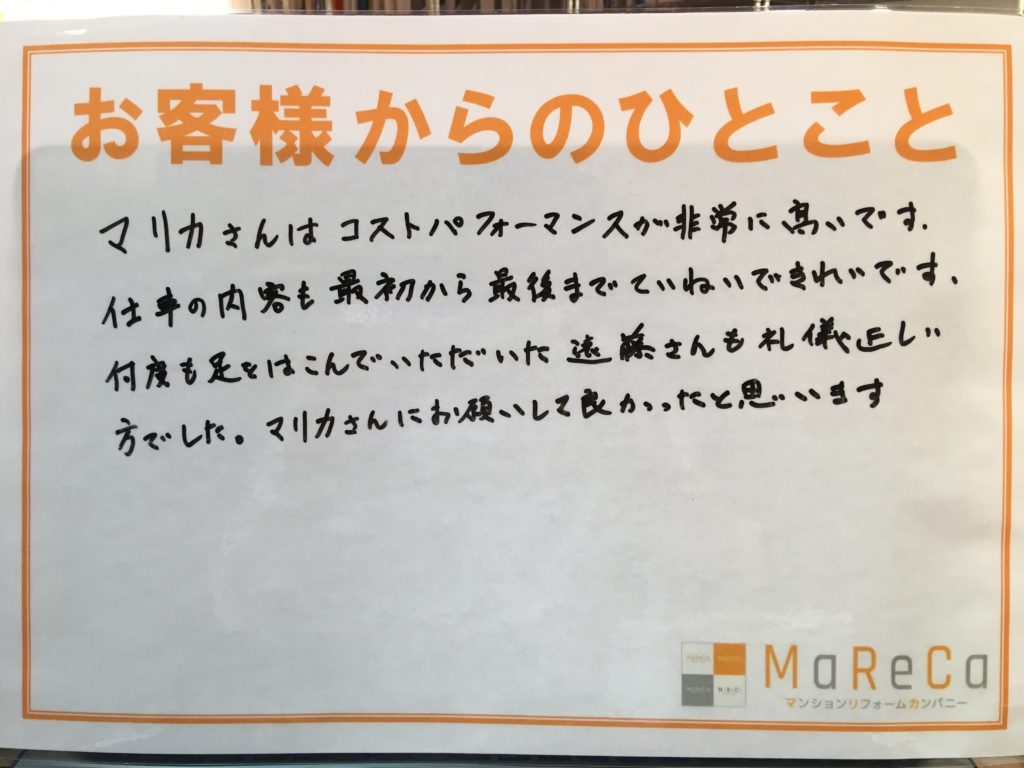 お客様からのひとこと
マリカさんは コストパフォーマンスが非常に高いです.
仕事の内容も 最初から 最後まで ていねいできれいです.
何度も足をはこんでいただいた 遠藤さんも 礼儀正しい
方でした。マリカさんにお願いして良かったと思います
MaReCa
マンションリフォームカンパニー